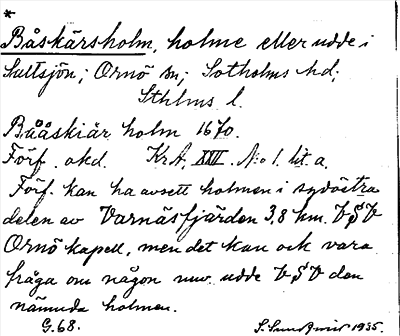 *
Båskärsholm, holme eller udde i
Saltsjön; Ornö sn; Sotholms hd;
Sthlms l.
Bååskiär holm 1670.
Förf. okd. KrA. XXV. N:o 1. lit a.
Förf. kan ha avsett holmen i sydöstra
delen av Varnäsfjärden 3,8 km. VSV
Ornö kapell, men det kan ock vara
fråga om någon nuv. udde VSV den
nämnda holmen.
G.68. 1935.